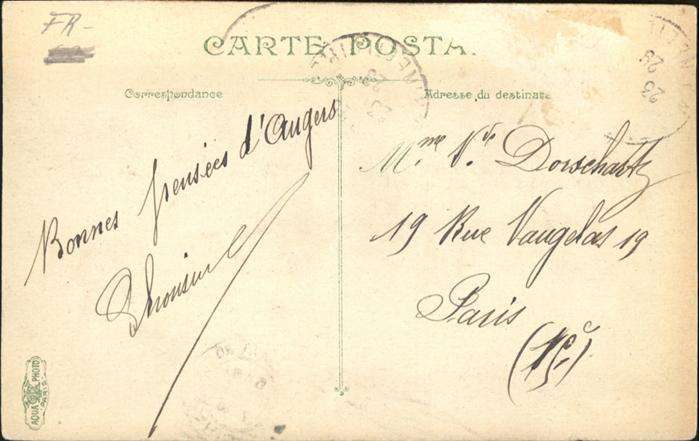 FR-
CARTE POSTA
Correspondance
Adresse du destinata
Bonnes pensées d'Angers
Mme Vve
19 Rue Vaugelas 19
Paris
(15e)
23
AQUA PHOTO
PARIS